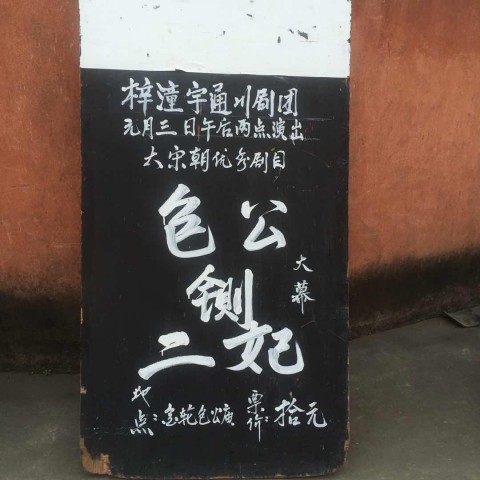 梓潼宇通川剧团
元月三日午后两点演出
大宋朝优秀剧目
包公
铡
二妃
大幕
地点：金乾包公庙
票价：拾元